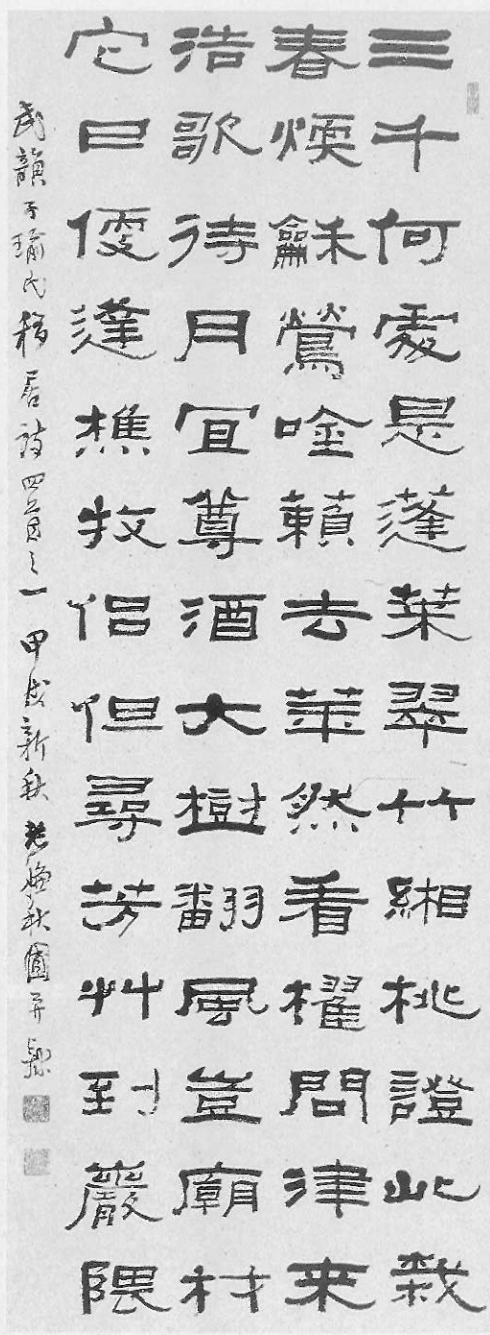 三千何處是蓬萊翠竹緗桃證此栽
春煖龢鶯唫籟去然看櫂問津来
浩歌待月宜尊酒大樹翻風豈廟材
它日便逢樵牧侶但尋芳艸到巖隈
韻子瑜氏移居詩四首之一 甲戌新秋 秋園并